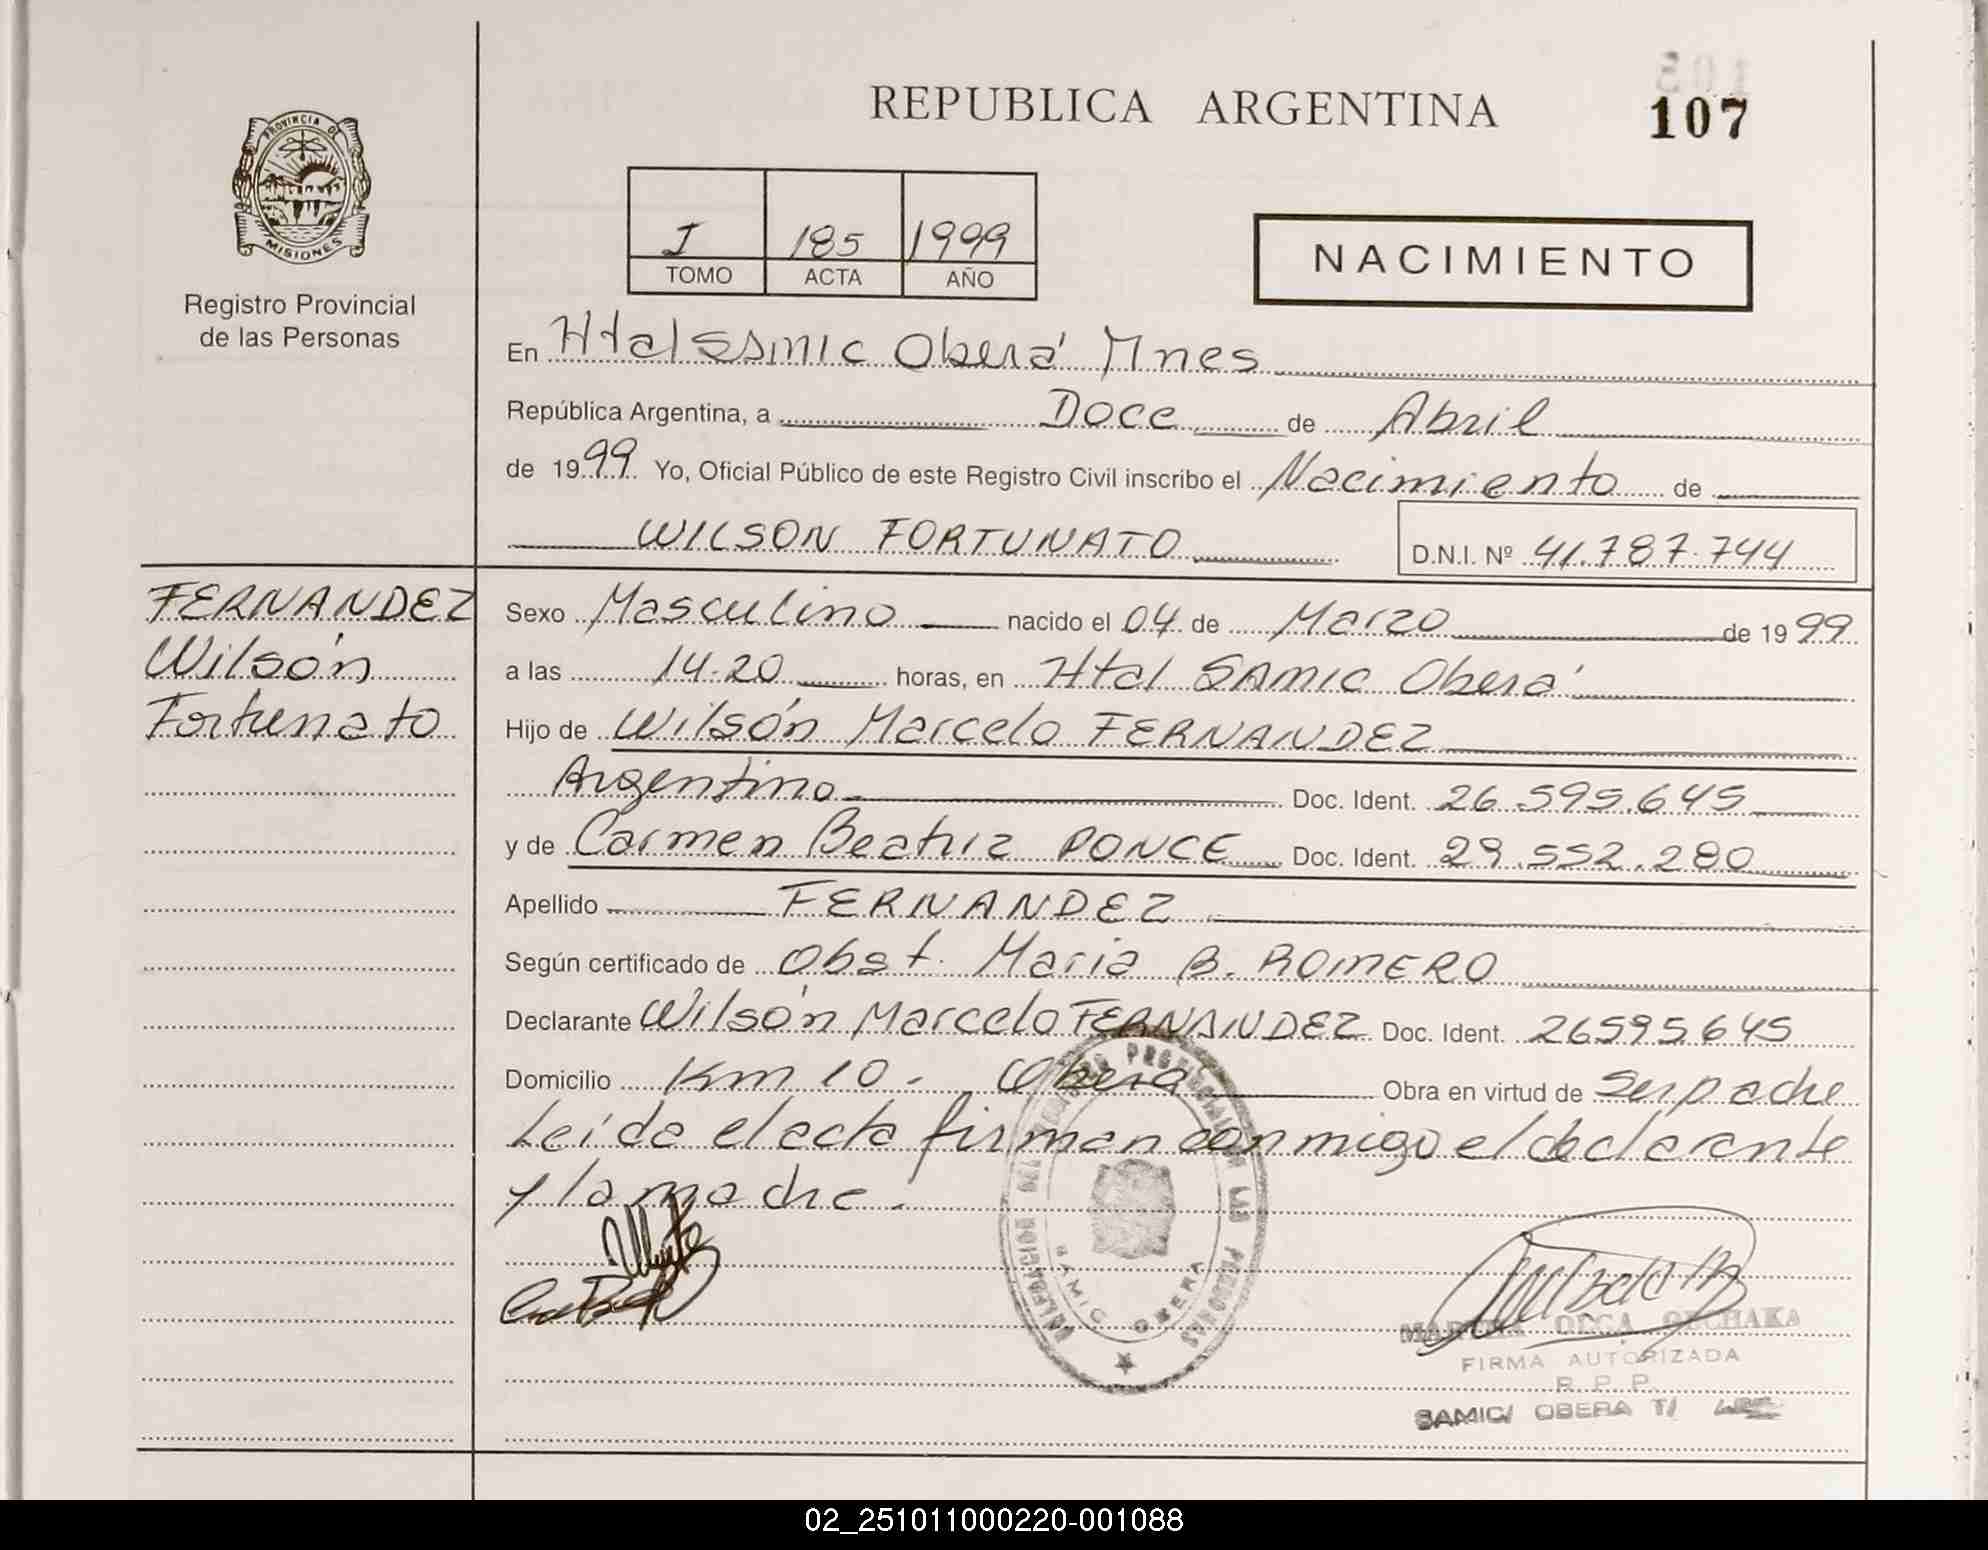 REPUBLICA ARGENTINA
107
PROVINCIA DE
MISIONES
Registro Provincial
de las Personas
I 185 1999
TOMO ACTA AÑO
NACIMIENTO
En Htal SAMIC Oberá Mnes
República Argentina, a Doce de Abril
de 1999 Yo, Oficial Público de este Registro Civil inscribo el Nacimiento de
WILSON FORTUNATO D.N.I. Nº 41.787.744
FERNANDEZ
Wilsón
Fortunato
Sexo Masculino nacido el 04 de Marzo de 1999
a las 14.20 horas, en Htal SAMIC Oberá
Hijo de Wilsón Marcelo FERNANDEZ
Argentino Doc. Ident. 26.595.645
y de Carmen Beatriz PONCE Doc. Ident. 29.552.280
Apellido FERNANDEZ
Según certificado de Obst. Maria B. ROMERO
Declarante Wilsón Marcelo FERNANDEZ Doc. Ident. 26595645
Domicilio Km 10. Oberá Obra en virtud de ser padre
Leída el acta firman conmigo el declarante
y la madre.
SAMIC OBERA
OLGA
FIRMA AUTORIZADA
R.P.P.
SAMIC/ OBERA
02_251011000220-001088